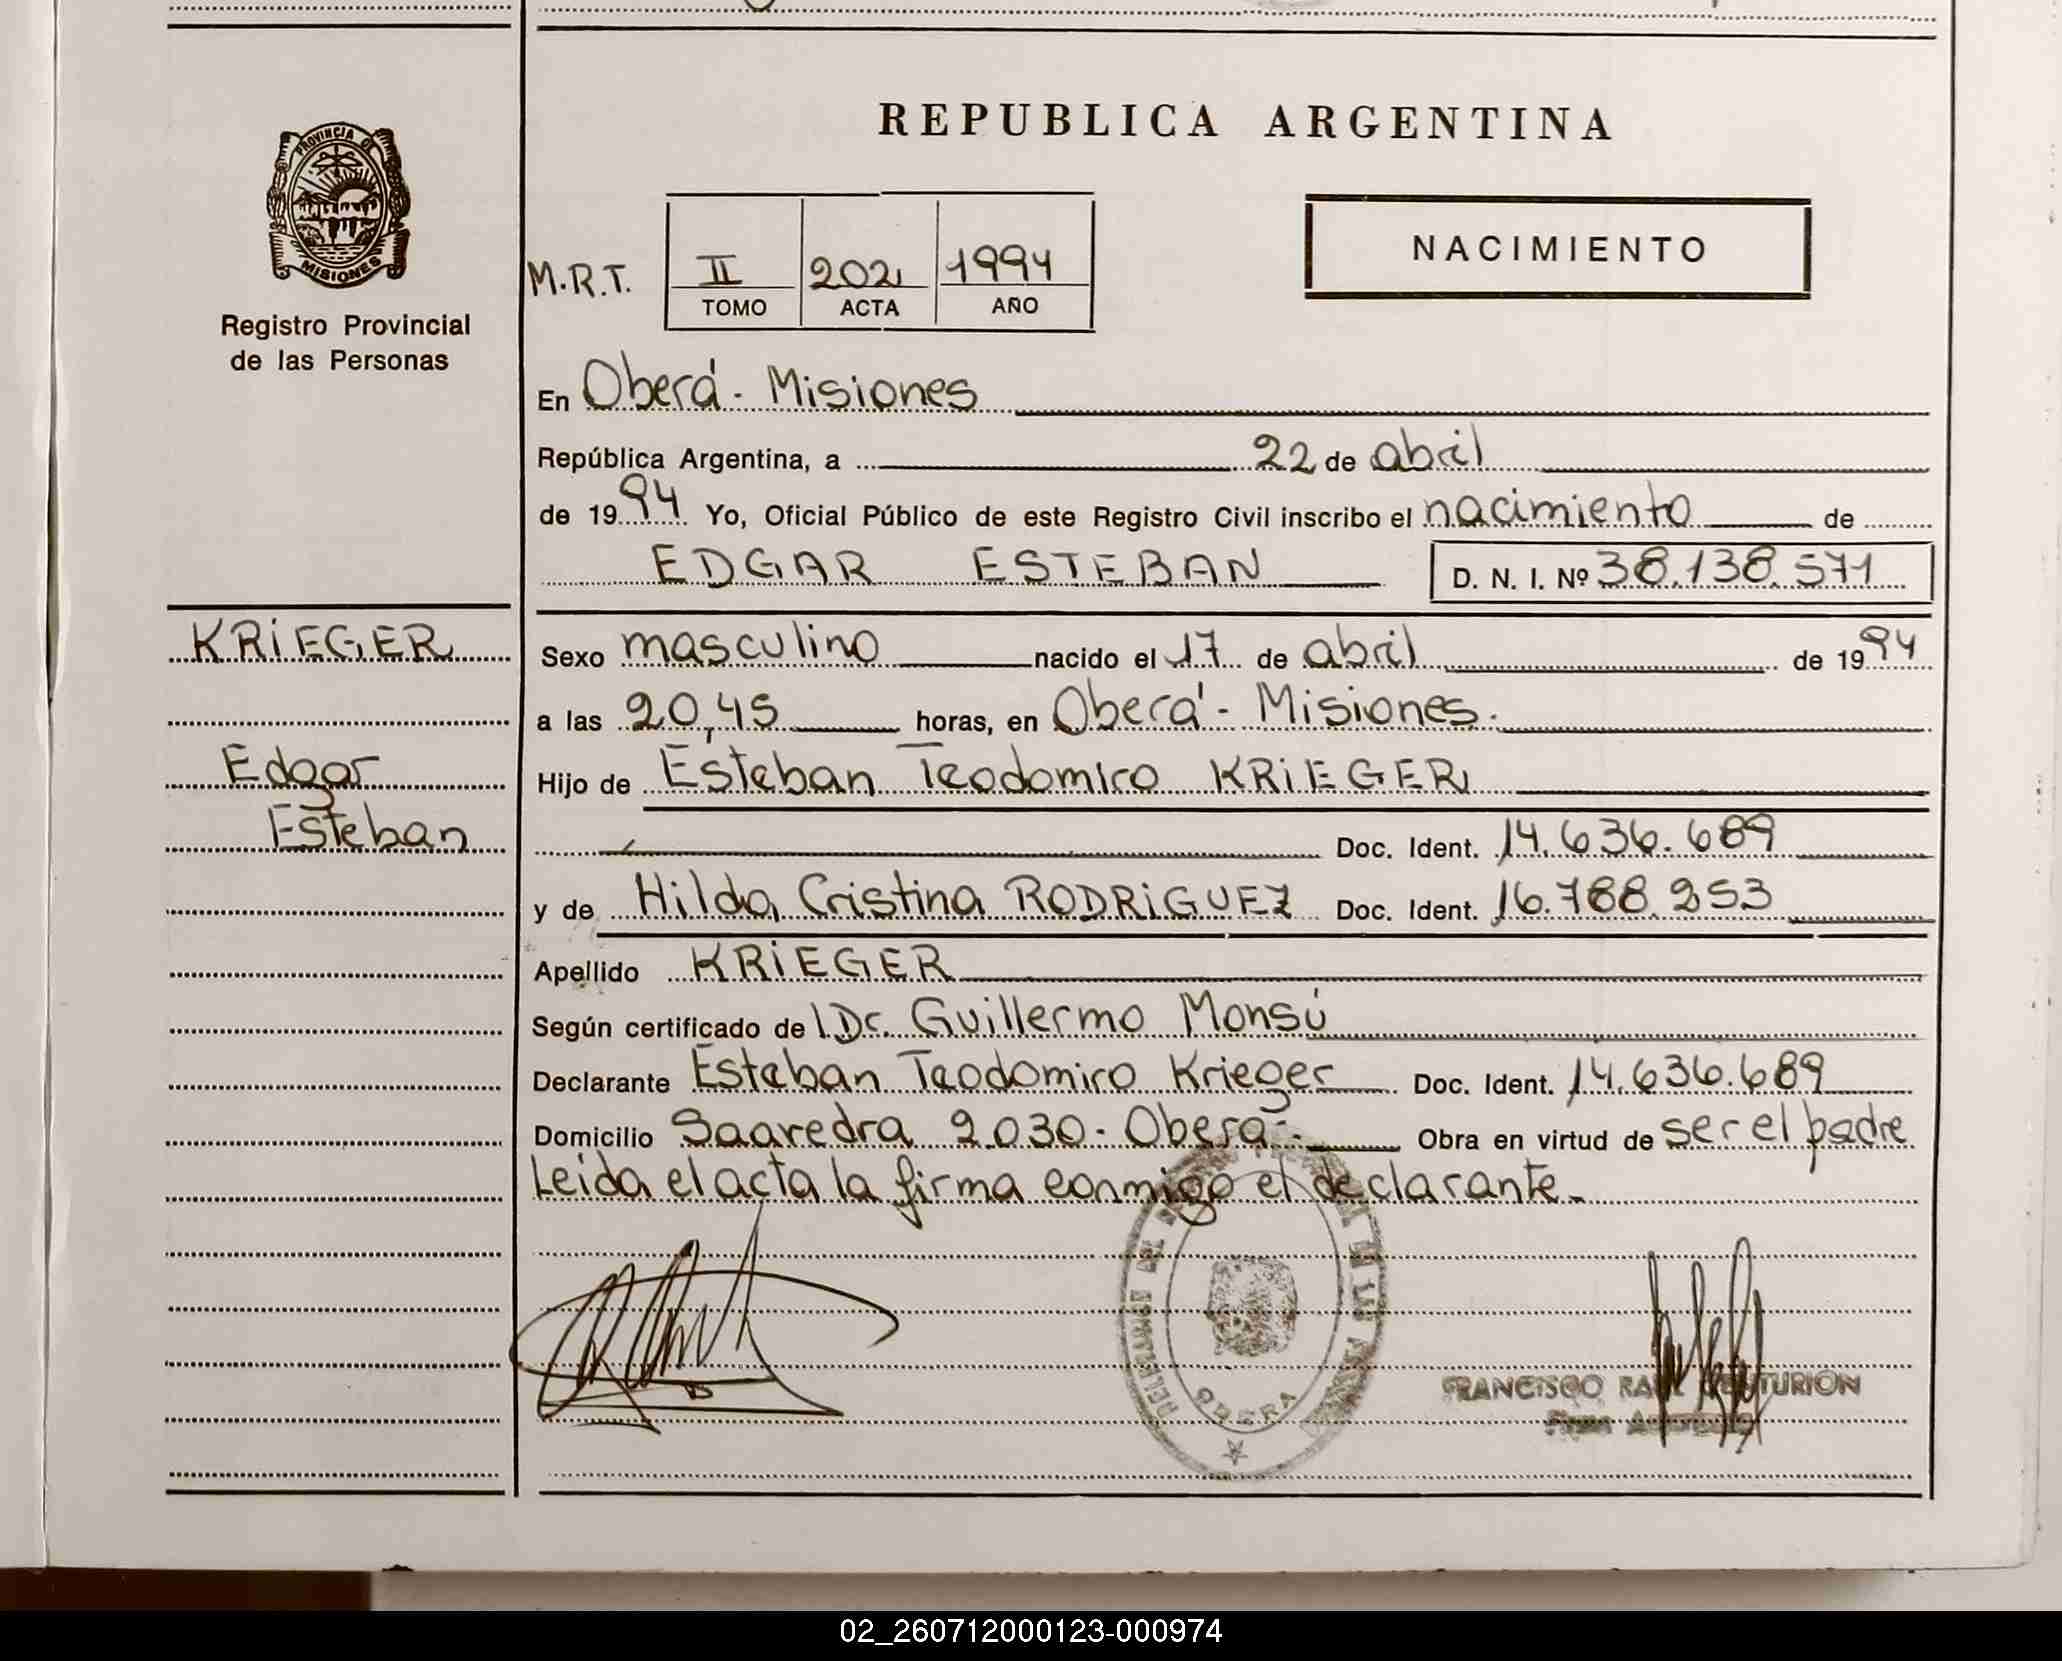 REPUBLICA ARGENTINA
PROVINCIA DE
MISIONES
Registro Provincial
de las Personas
NACIMIENTO
M.R.T. II 202 1994
TOMO ACTA AÑO
En Oberá - Misiones
República Argentina, a 22 de abril
de 1994 Yo, Oficial Público de este Registro Civil inscribo el nacimiento de
EDGAR ESTEBAN D. N. I. Nº 38.138.571
KRIEGER
Edgar
Esteban
Sexo masculino nacido el 17 de abril de 1994
a las 20,45 horas, en Oberá - Misiones.
Hijo de Esteban Teodomiro KRIEGER
Doc. Ident. 14.636.689
y de Hilda Cristina RODRIGUEZ Doc. Ident. 16.788.253
Apellido KRIEGER
Según certificado de l Dr. Guillermo Monsú
Declarante Esteban Teodomiro Krieger Doc. Ident. 14.636.689
Domicilio Saavedra 2030. Oberá. Obra en virtud de ser el padre
Leida el acta la firma conmigo el declarante.
OBERA
FRANCISCO RAUL CENTURION
02_260712000123-000974